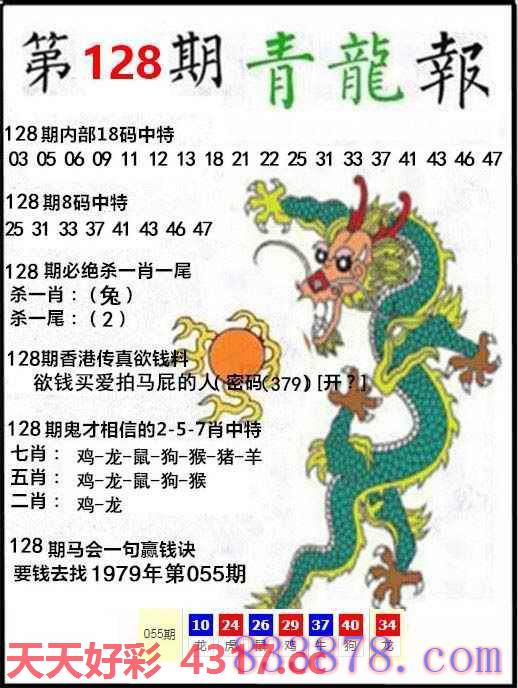 第128期 青龍報
128期内部18码中特
03 05 06 09 11 12 13 18 21 22 25 31 33 37 41 43 46 47
128期8码中特
25 31 33 37 41 43 46 47
128期必绝杀一肖一尾
杀一肖：（兔）
杀一尾：（2）
128期香港传真欲钱料
欲钱买爱拍马屁的人（密码(379）[开？]
128期鬼才相信的2-5-7肖中特
七肖： 鸡-龙-鼠-狗-猴-猪-羊
五肖： 鸡-龙-鼠-狗-猴
二肖： 鸡-龙
128期马会一句赢钱诀
要钱去找1979年第055期
055期 10 24 26 29 37 40 34
龙 虎 鼠 鸡 牛 狗 龙
天天好彩 4317.cc
838878.com